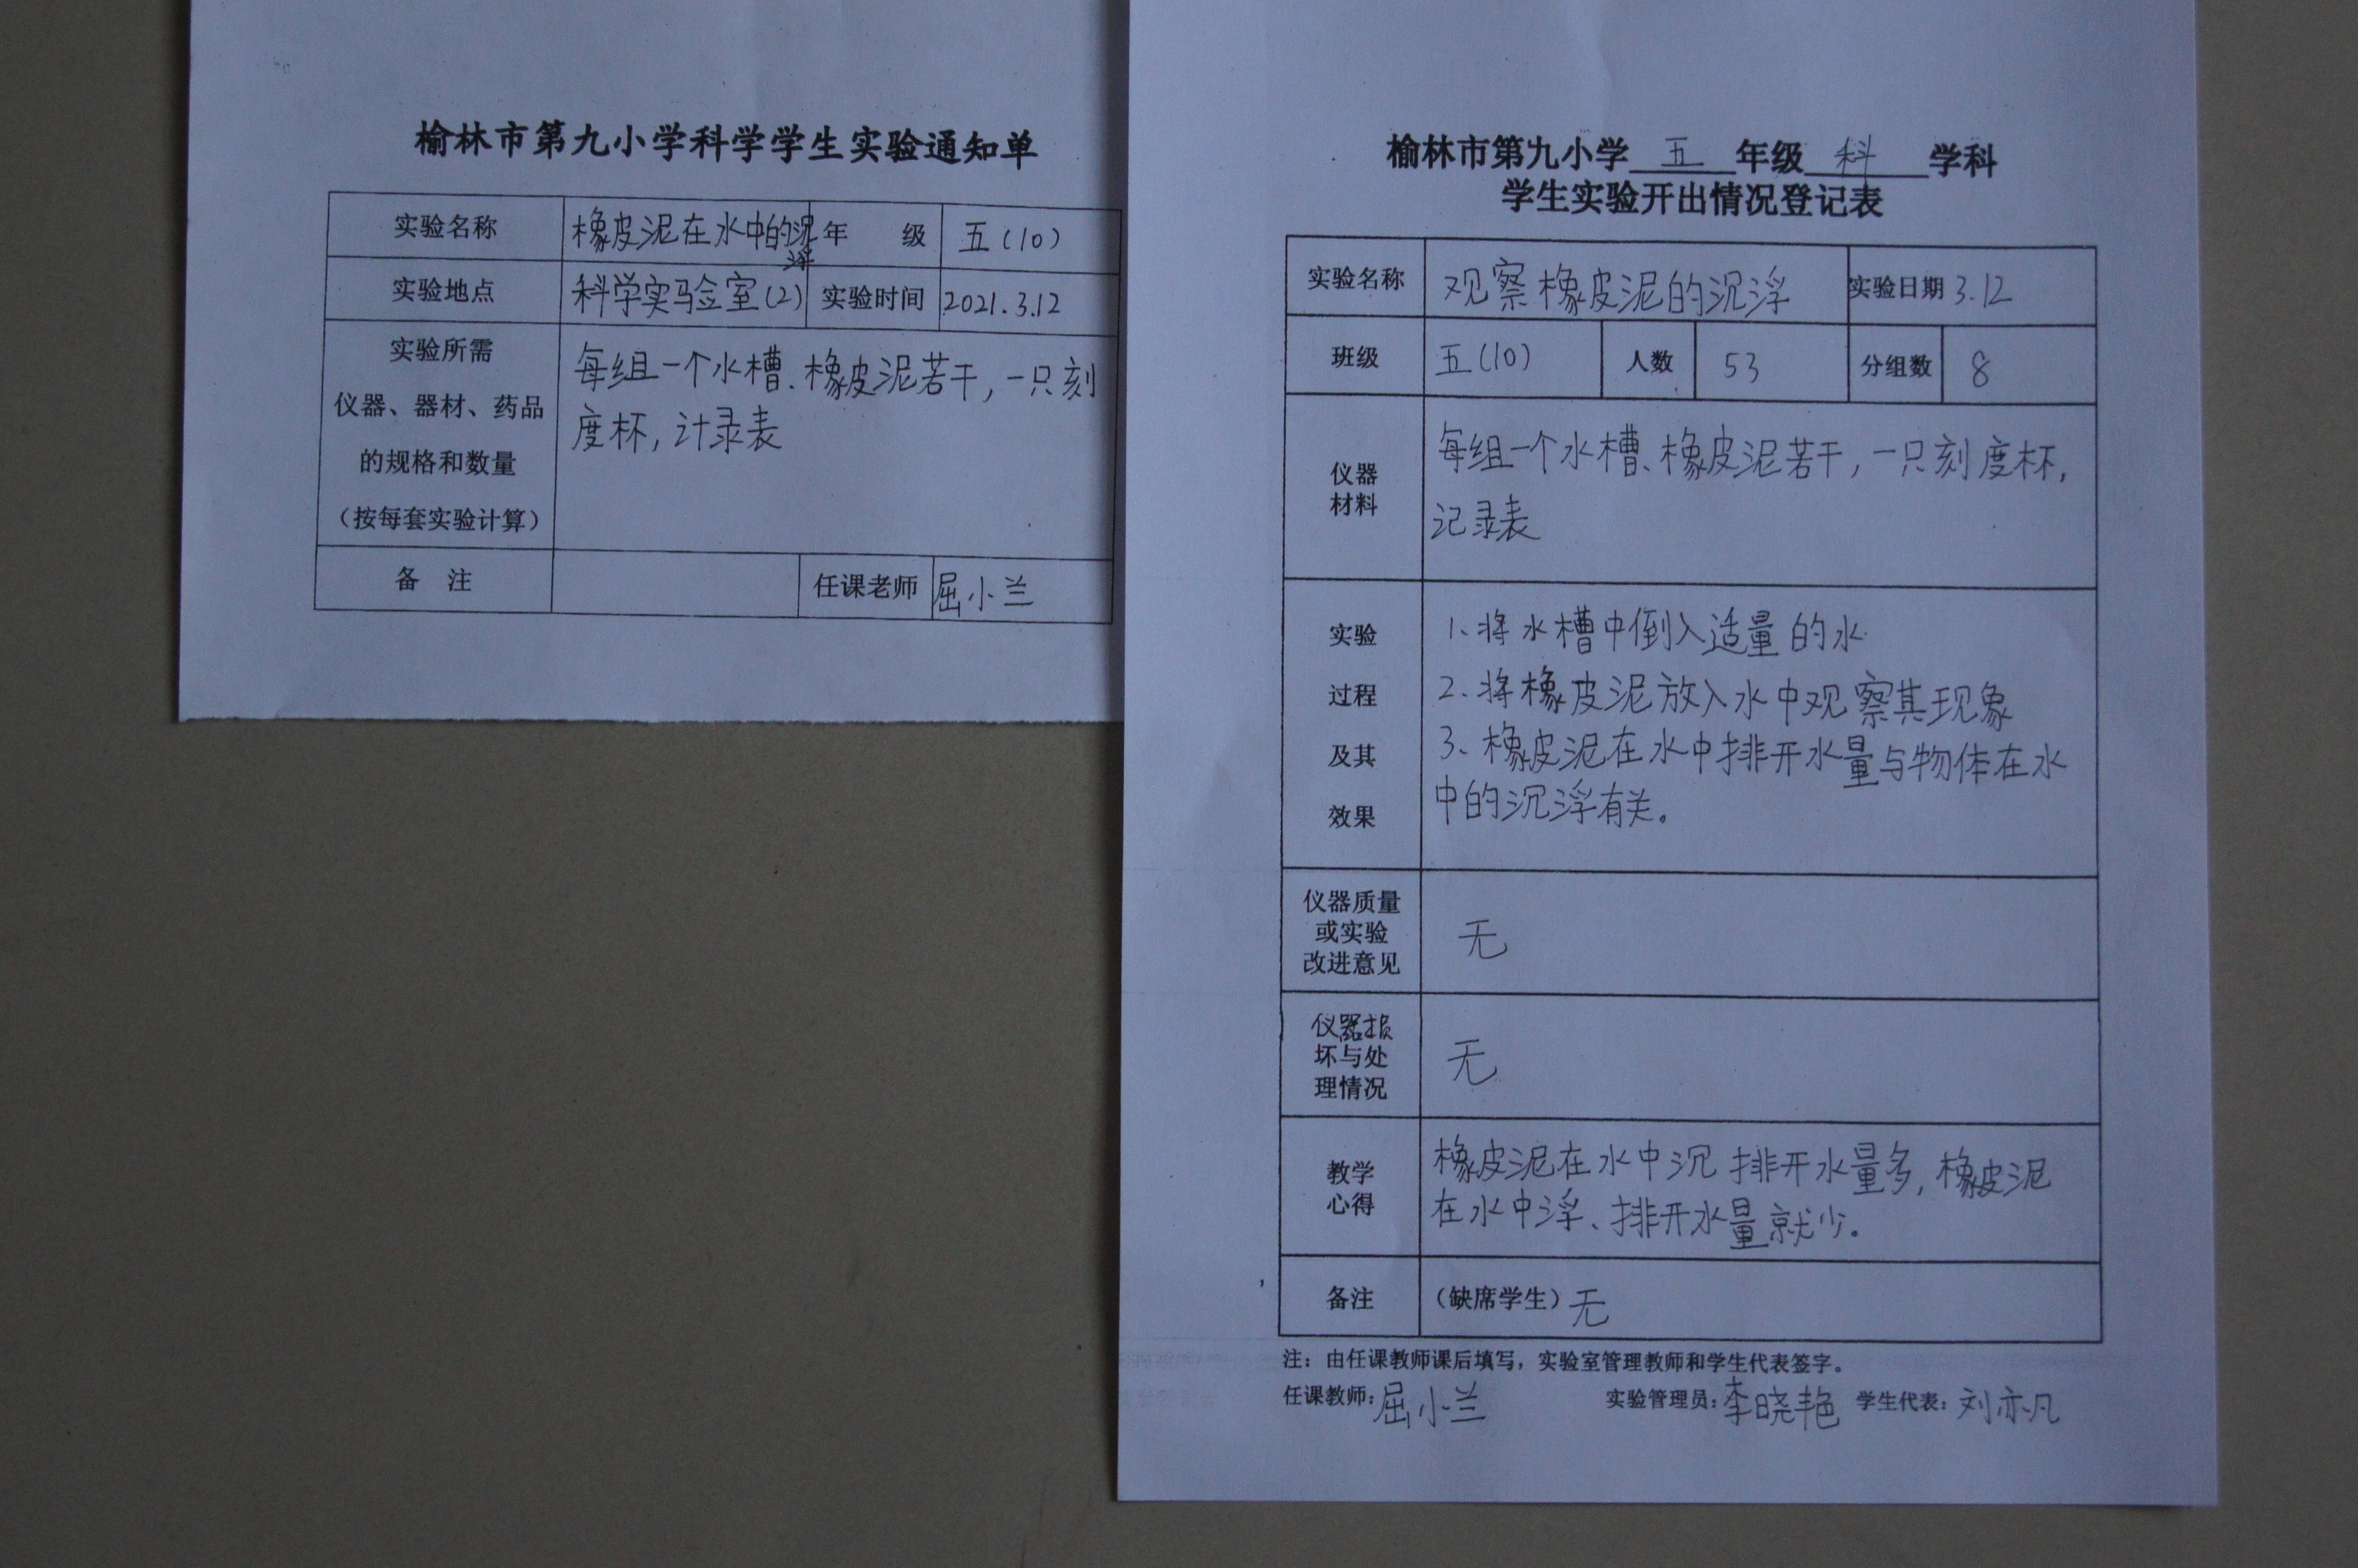 榆林市第九小学科学学生实验通知单
实验名称 橡皮泥在水中的沉浮 年 级 五(10)
实验地点 科学实验室(2) 实验时间 2021.3.12
实验所需
仪器、器材、药品
的规格和数量
(按每套实验计算)
每组一个水槽、橡皮泥若干,一只刻
度杯,计录表
备 注 任课老师 屈小兰
榆林市第九小学 五 年级 科 学科
学生实验开出情况登记表
实验名称 观察橡皮泥的沉浮 实验日期 3.12
班级 五(10) 人数 53 分组数 8
仪器
材料
每组一个水槽、橡皮泥若干,一只刻度杯,
记录表
实验
过程
及其
效果
1、将水槽中倒入适量的水
2、将橡皮泥放入水中观察其现象
3、橡皮泥在水中排开水量与物体在水
中的沉浮有关。
仪器质量
或实验
改进意见
无
仪器损
坏与处
理情况
无
教学
心得
橡皮泥在水中沉 排开水量多,橡皮泥
在水中浮、排开水量就少。
备注 (缺席学生)无
注:由任课教师课后填写,实验室管理教师和学生代表签字。
任课教师:屈小兰 实验管理员:李晓艳 学生代表:刘亦凡